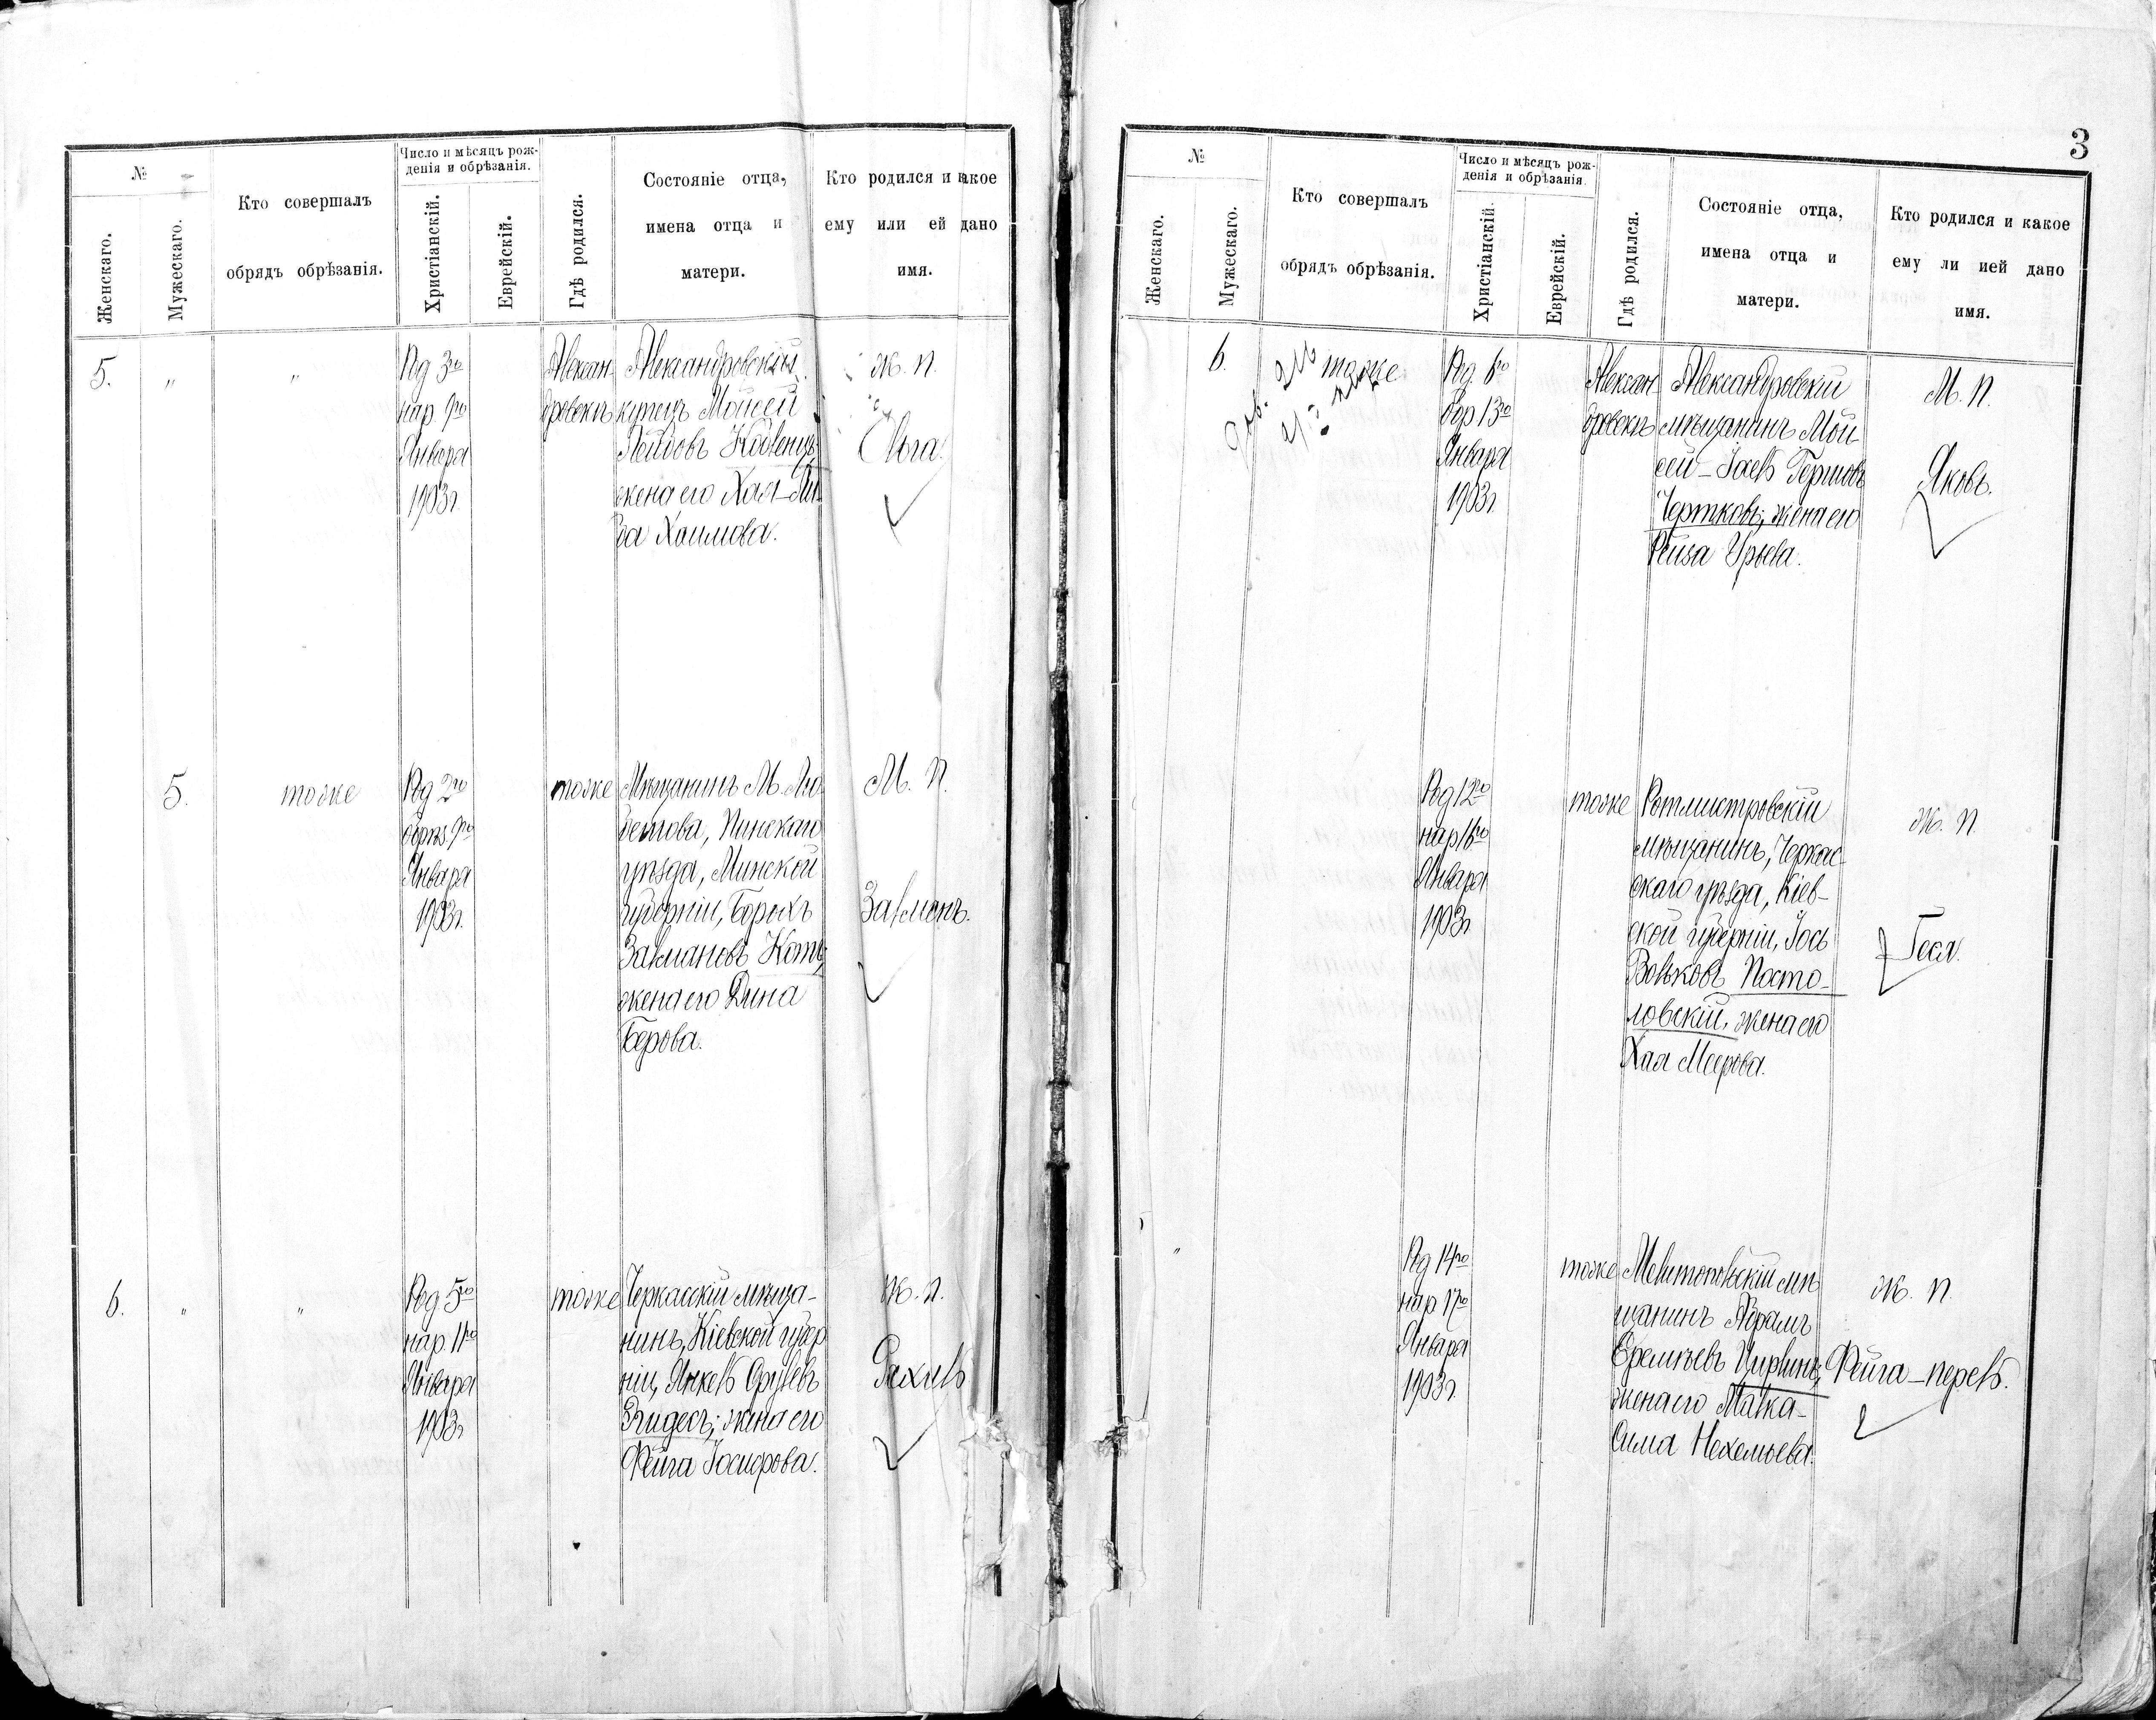 №
Женскаго.
Мужескаго.
Кто совершалъ
обрядъ обрѣзанія.
Число и мѣсяцъ рож-
денія и обрѣзанія.
Христіанскій.
Еврейскій.
Гдѣ родился.
Состояніе отца,
имена отца и
матери.
Кто родился и какое
ему или ей дано
имя.
5.
"
"
Род 3го
нар. 9го
Января
1903г.
Алексан
дровскъ
Александровскій
купецъ Мойсей
Лейбовъ
жена его Хая-Ли
ба Хаимова.
Ж. П.
Ольга.
5.
тоже
Род 2го
обрѣз 9го
Января
1903г.
тоже
Мѣщанинъ М. Лю
бешова, Пинскаго
уѣзда, Минской
губерніи, Борухъ
Залмановъ Котъ,
жена его Дина
Берова.
М. П.
Залменъ.
6.
"
"
Род 5го
нар. 11го
Января
1903г
тоже
Черкасскій мѣща-
нинъ, Кіевской губер
ніи, Янкель Срулевъ
жена его
Фейга Іосифова.
Ж. П.
Рахиль
3
№
Женскаго.
Мужескаго.
Кто совершалъ
обрядъ обрѣзанія.
Число и мѣсяцъ рож-
денія и обрѣзанія.
Христіанскій.
Еврейскій.
Гдѣ родился.
Состояніе отца,
имена отца и
матери.
Кто родился и какое
ему ли ией дано
имя.
6.
тоже
Род. 6го
обр 13го
Января
1903г
Алексан
дровскъ
Александровскій
мѣщанинъ Мой-
сей-Іоель Гершовъ
Чертковъ, жена его
Рейза Урьева.
М. П.
Яковъ.
Род 12го
нар 16го
Января
1903г
тоже
Ротмистровскій
мѣщанинъ, Черкас-
скаго уѣзда, Кіев-
ской губерніи, Іось
Вольковъ Посто-
ловскій, жена его
Хая Меерова.
Ж. П.
Геся.
"
Род 14го
нар 17го
Января
1903г.
тоже
Мелитопольскій мѣ
щанинъ Абрамъ
Еремѣевъ Цирлинъ,
жена его Малка-
Сима Нехемьева.
Ж. П.
Фейга-перель.